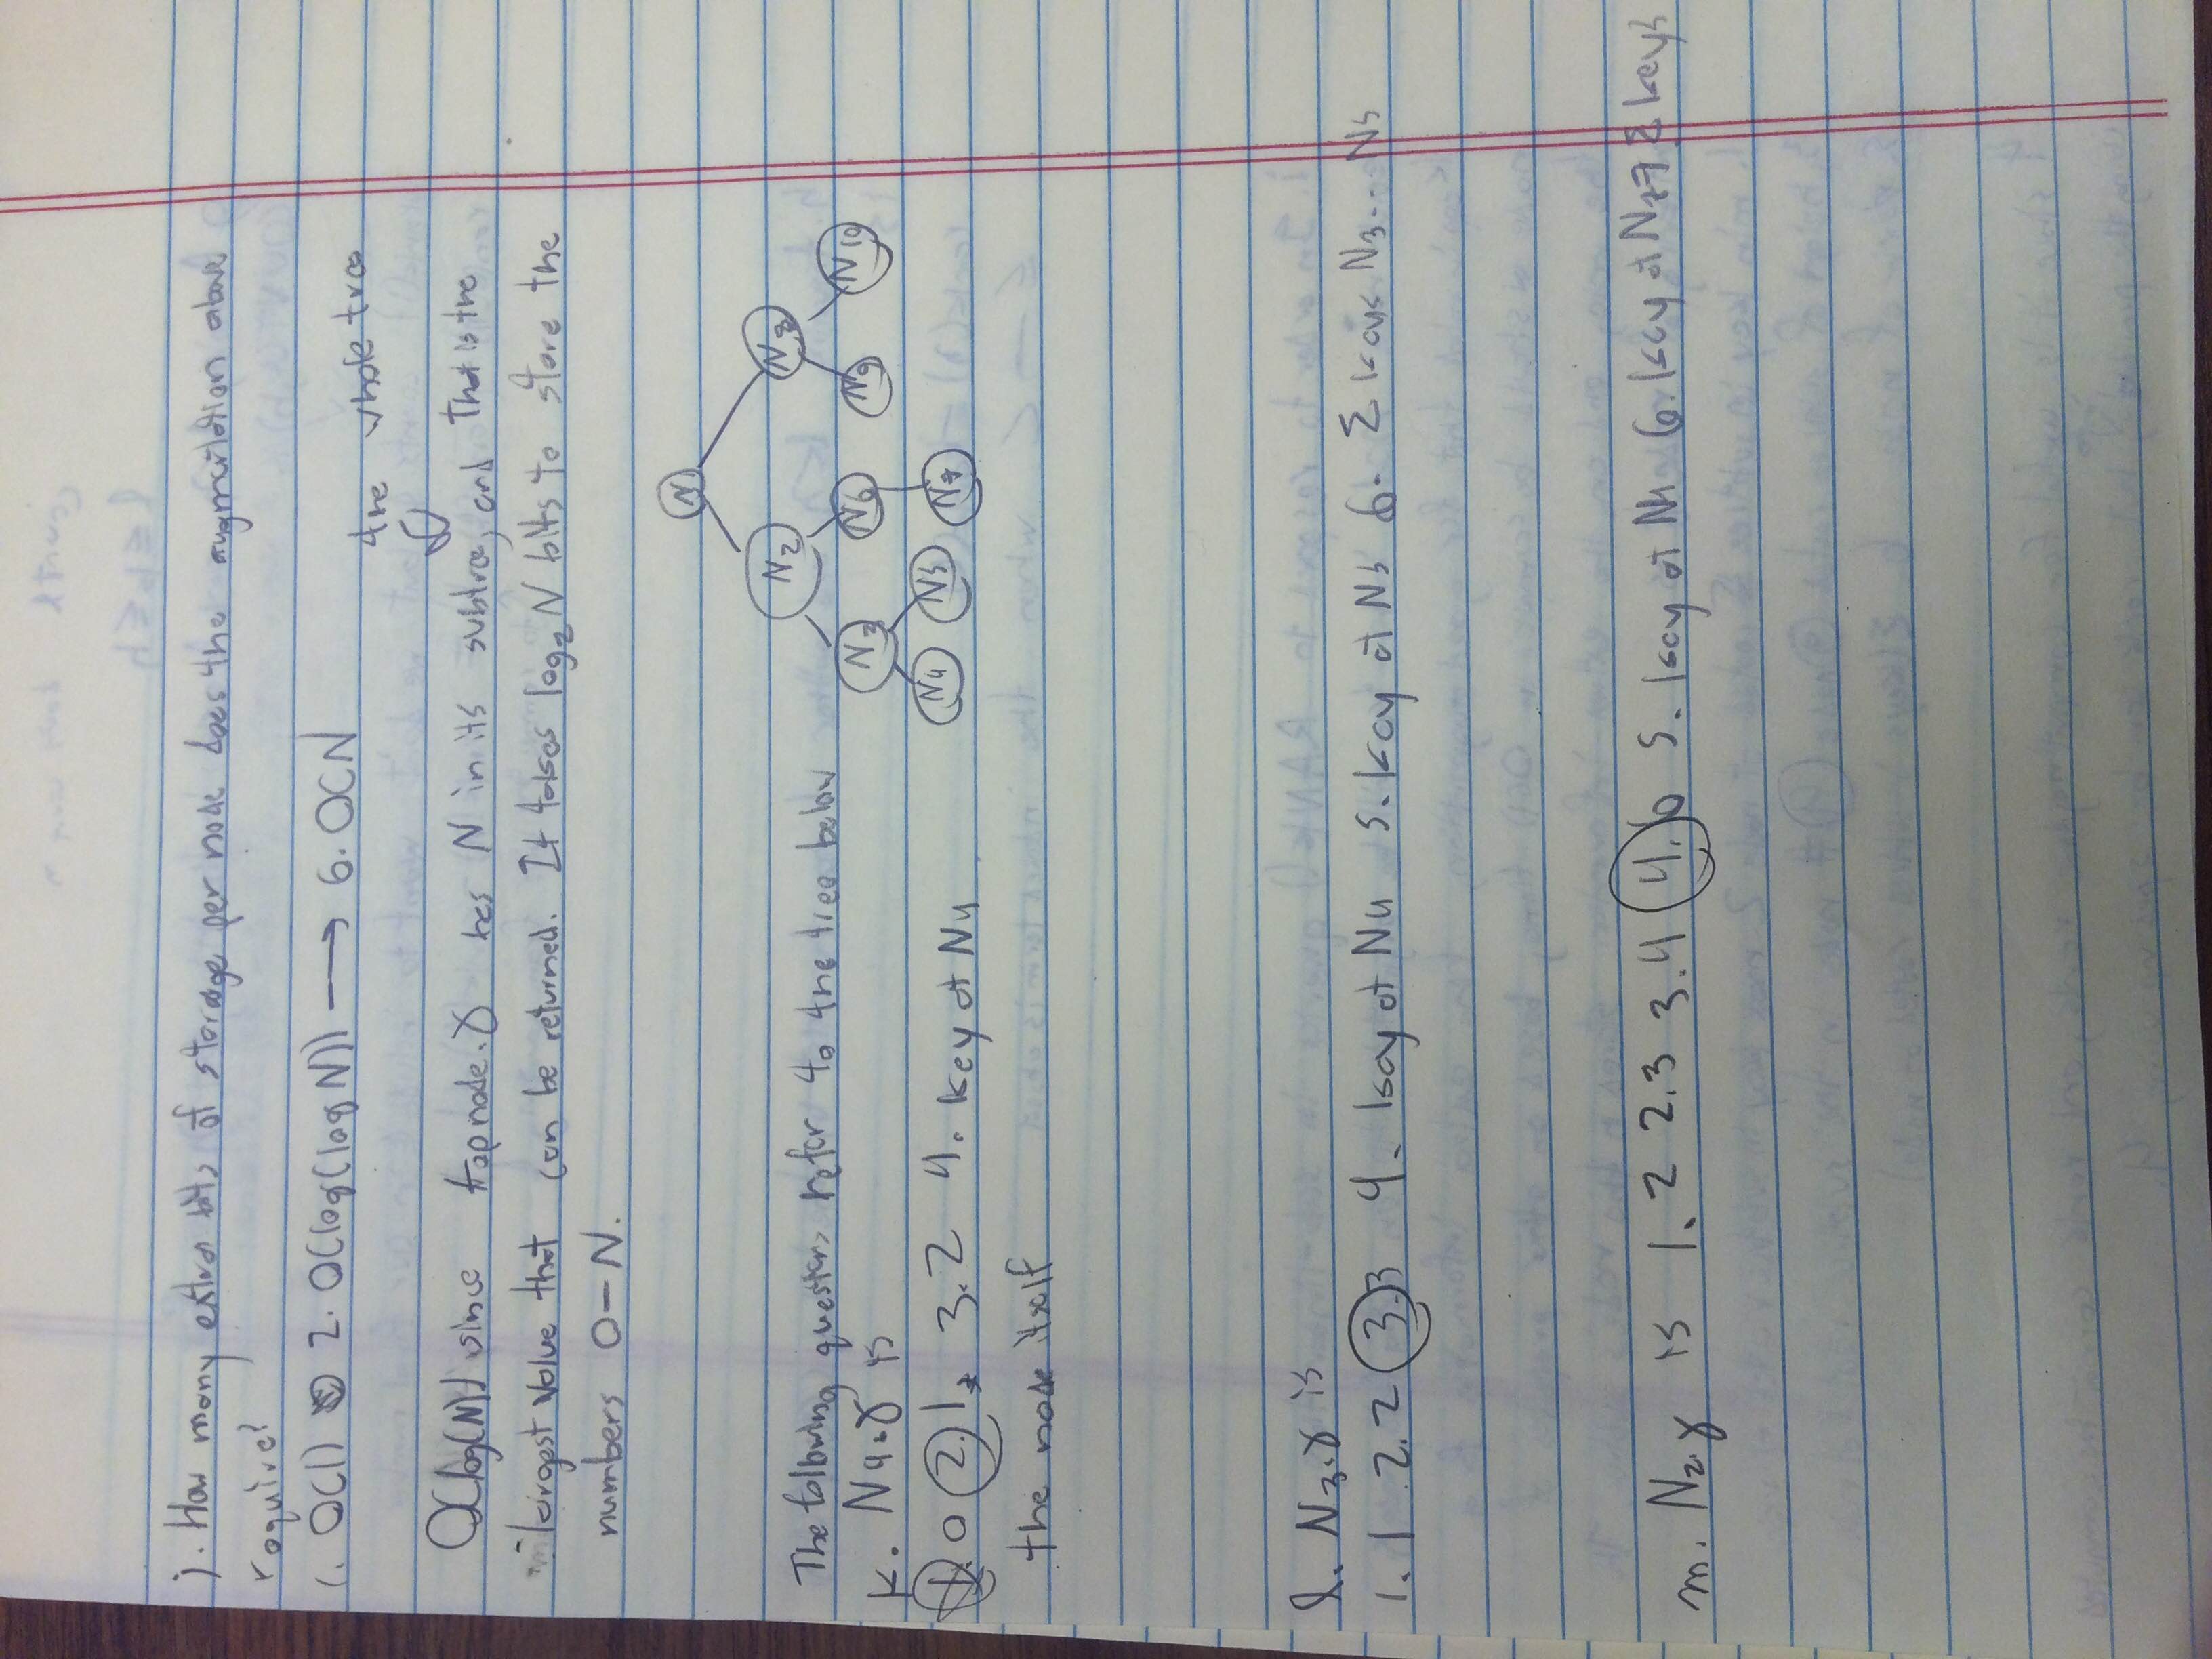 j. How many extra bits of storage per node does the augmentation above
require?
1. O(1) 2. O(log(log N)) → 6. O(N
the whole tree
O(log(N)) since top node.γ has N in its subtree, and That is the
largest value that can be returned. It takes log₂ N bits to store the
numbers 0–N.
N
N2 N8
The following questions refer to the tree below
N3 N6 N9 N10
k. N4.γ is
N4 N5 N7
1. 0 2. 1 3. 2 4. key at N4
the node itself
l. N3.γ is
1. 1 2. 2 3. 3 4. key at N4 5. key at N5 6. Σ keys N3... N5
m. N2.γ is 1. 2 2. 3 3. 4 4. 6 5. key at N4 6. key at N7 7 Σ keys